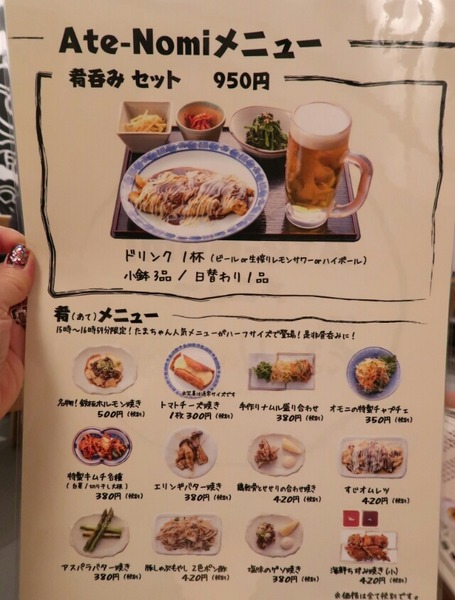 Ate-Nomiメニュー
肴呑み セット 950円
ドリンク 1杯 (ビール or 生搾りレモンサワー or ハイボール)
小鉢3品 / 日替わり1品
肴(あて)メニュー
15時〜16時59分限定! たまちゃん人気メニューがハーフサイズで登場! 是非昼呑みに!
※写真は通常サイズです
名物! 鉄板ホルモン焼き
500円(税別)
トマトチーズ焼き
1枚300円(税別)
手作りナムル盛り合わせ
380円(税別)
オモニの特製チャプチェ
350円(税別)
特製キムチ各種
(白菜/切り干し大根)
380円(税別)
エリンギバター焼き
380円(税別)
鶏軟骨とせせりの合わせ焼き
420円(税別)
すじオムレツ
420円(税別)
アスパラバター焼き
380円(税別)
豚しゃぶもやし 2色ポン酢
420円(税別)
塩味のゲソ焼き
380円(税別)
海鮮ちぢみ焼き(小)
420円(税別)
※価格は全て税別です。